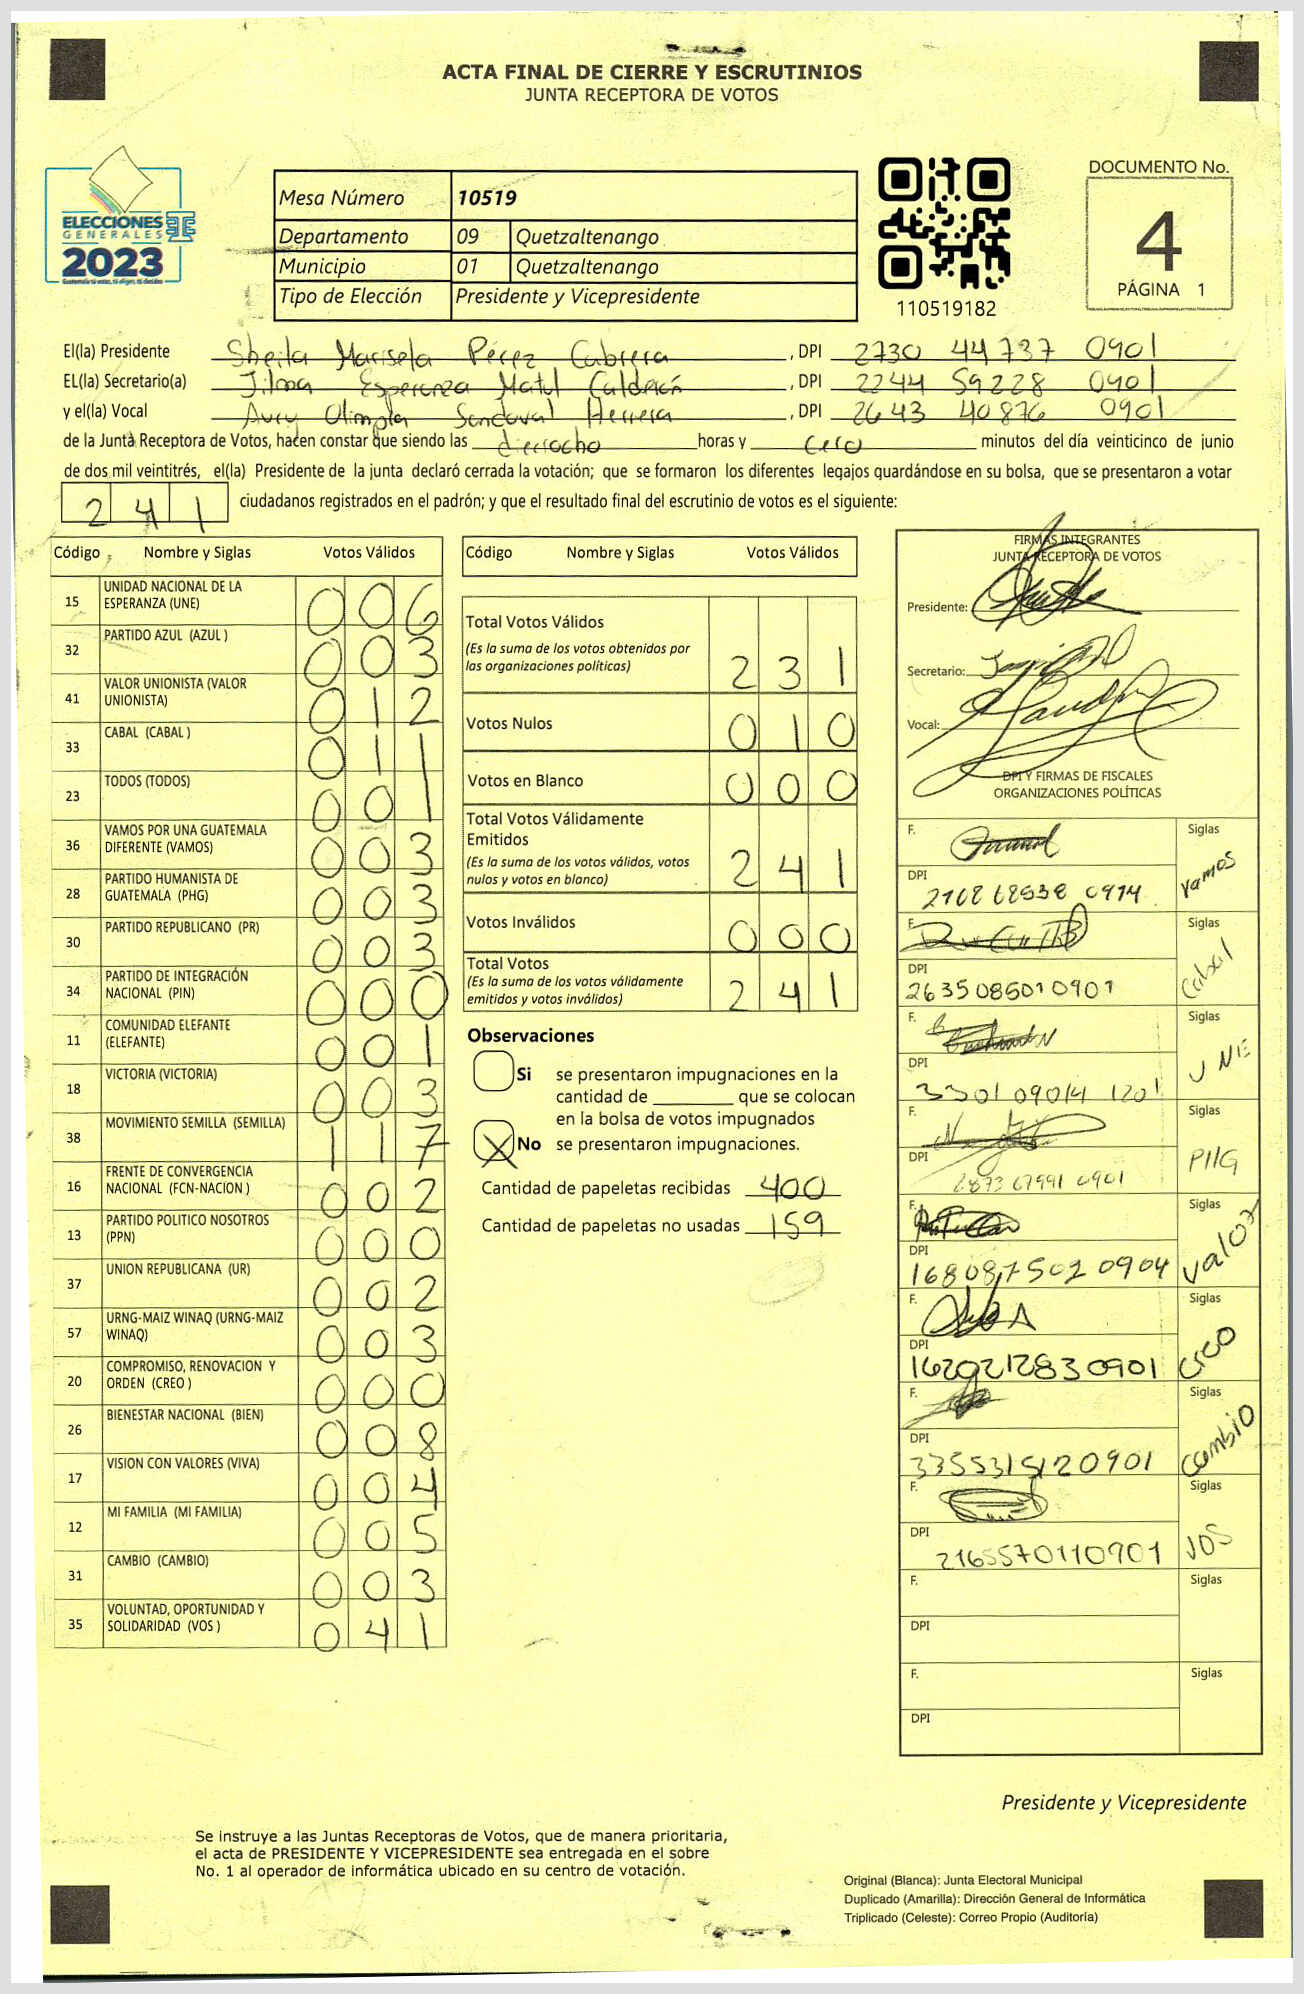 ACTA FINAL DE CIERRE Y ESCRUTINIOS
JUNTA RECEPTORA DE VOTOS
ELECCIONES
GENERALES
2023
Mesa Número 10519
Departamento 09 Quetzaltenango
Municipio 01 Quetzaltenango
Tipo de Elección Presidente y Vicepresidente
110519182
DOCUMENTO No.
4
PÁGINA 1
El(la) Presidente Sheila Marisela Pérez Cabrera, DPI 2730 44737 0901
EL(la) Secretario(a) Jilma Esperanza Matul Calderón, DPI 2244 59228 0901
y el(la) Vocal Aury Olimpia Sandoval Herrera, DPI 2643 40876 0901
de la Junta Receptora de Votos, hacen constar que siendo las dieciocho horas y cero minutos del día veinticinco de junio
de dos mil veintitrés, el(la) Presidente de la junta declaró cerrada la votación; que se formaron los diferentes legajos guardándose en su bolsa, que se presentaron a votar
241 ciudadanos registrados en el padrón; y que el resultado final del escrutinio de votos es el siguiente:
Código Nombre y Siglas Votos Válidos
15 UNIDAD NACIONAL DE LA ESPERANZA (UNE) 006
32 PARTIDO AZUL (AZUL ) 003
41 VALOR UNIONISTA (VALOR UNIONISTA) 012
33 CABAL (CABAL ) 011
23 TODOS (TODOS) 001
36 VAMOS POR UNA GUATEMALA DIFERENTE (VAMOS) 003
28 PARTIDO HUMANISTA DE GUATEMALA (PHG) 003
30 PARTIDO REPUBLICANO (PR) 003
34 PARTIDO DE INTEGRACIÓN NACIONAL (PIN) 000
11 COMUNIDAD ELEFANTE (ELEFANTE) 001
18 VICTORIA (VICTORIA) 003
38 MOVIMIENTO SEMILLA (SEMILLA) 117
16 FRENTE DE CONVERGENCIA NACIONAL (FCN-NACION ) 002
13 PARTIDO POLITICO NOSOTROS (PPN) 000
37 UNION REPUBLICANA (UR) 002
57 URNG-MAIZ WINAQ (URNG-MAIZ WINAQ) 003
20 COMPROMISO, RENOVACION Y ORDEN (CREO ) 000
26 BIENESTAR NACIONAL (BIEN) 008
17 VISION CON VALORES (VIVA) 004
12 MI FAMILIA (MI FAMILIA) 005
31 CAMBIO (CAMBIO) 003
35 VOLUNTAD, OPORTUNIDAD Y SOLIDARIDAD (VOS ) 041
Código Nombre y Siglas Votos Válidos
Total Votos Válidos 231
(Es la suma de los votos obtenidos por
las organizaciones políticas)
Votos Nulos 010
Votos en Blanco 000
Total Votos Válidamente
Emitidos 241
(Es la suma de los votos válidos, votos
nulos y votos en blanco)
Votos Inválidos 000
Total Votos 241
(Es la suma de los votos válidamente
emitidos y votos inválidos)
Observaciones
Si se presentaron impugnaciones en la
cantidad de ________ que se colocan
en la bolsa de votos impugnados
X No se presentaron impugnaciones.
Cantidad de papeletas recibidas 400
Cantidad de papeletas no usadas 159
FIRMAS INTEGRANTES
JUNTA RECEPTORA DE VOTOS
Presidente:
Secretario:
Vocal:
DPI Y FIRMAS DE FISCALES
ORGANIZACIONES POLÍTICAS
F. Siglas Vamos
DPI 2168 68538 0914
F. Siglas Cabal
DPI 2635085010901
F. Siglas UNE
DPI 3301 09014 1201
F. Siglas PHG
DPI 2873 67991 0901
F. Siglas Valor
DPI 1680875020904
F. Siglas Creo
DPI 1620212830901
F. Siglas Cambio
DPI 3355315120901
F. Siglas VOS
DPI 2165570110901
F. Siglas
DPI
F. Siglas
DPI
Presidente y Vicepresidente
Se instruye a las Juntas Receptoras de Votos, que de manera prioritaria,
el acta de PRESIDENTE Y VICEPRESIDENTE sea entregada en el sobre
No. 1 al operador de informática ubicado en su centro de votación.
Original (Blanca): Junta Electoral Municipal
Duplicado (Amarilla): Dirección General de Informática
Triplicado (Celeste): Correo Propio (Auditoría)